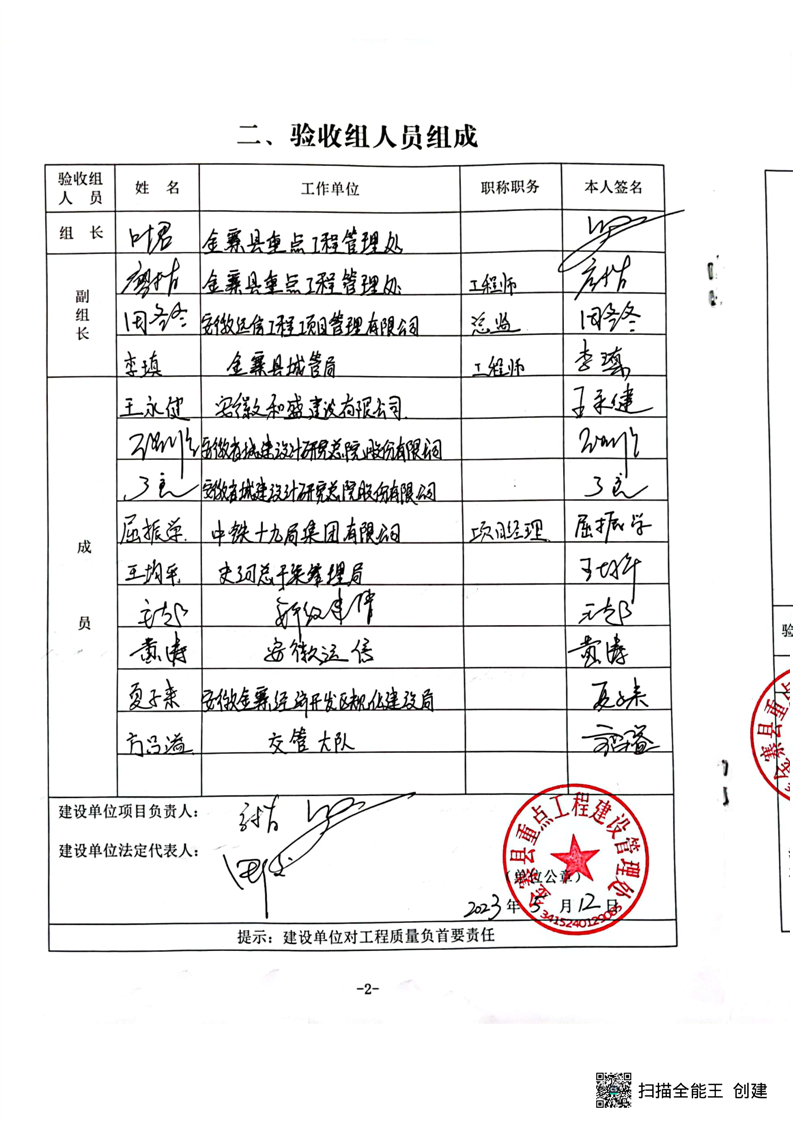 二、验收组人员组成
验收组人员 姓 名 工作单位 职称职务 本人签名
组 长 叶君 金寨县重点工程管理处
副组长 金寨县重点工程管理处 工程师
周冬冬 安徽远信工程项目管理有限公司 总监 周冬冬
李瑱 金寨县城管局 工程师 李瑱
成员 王永健 安徽和盛建设有限公司 王永健
安徽省城建设计研究总院股份有限公司
安徽省城建设计研究总院股份有限公司
屈振学 中铁十九局集团有限公司 项目经理 屈振学
史河总干渠管理局
黄涛 安徽远信 黄涛
夏子来 安徽金寨经济开发区规化建设局 夏子来
交管大队
建设单位项目负责人:
建设单位法定代表人:
(单位公章)
2023年5月12日
金寨县重点工程建设管理处
提示:建设单位对工程质量负首要责任
-2-
验
寨县重
扫描全能王 创建